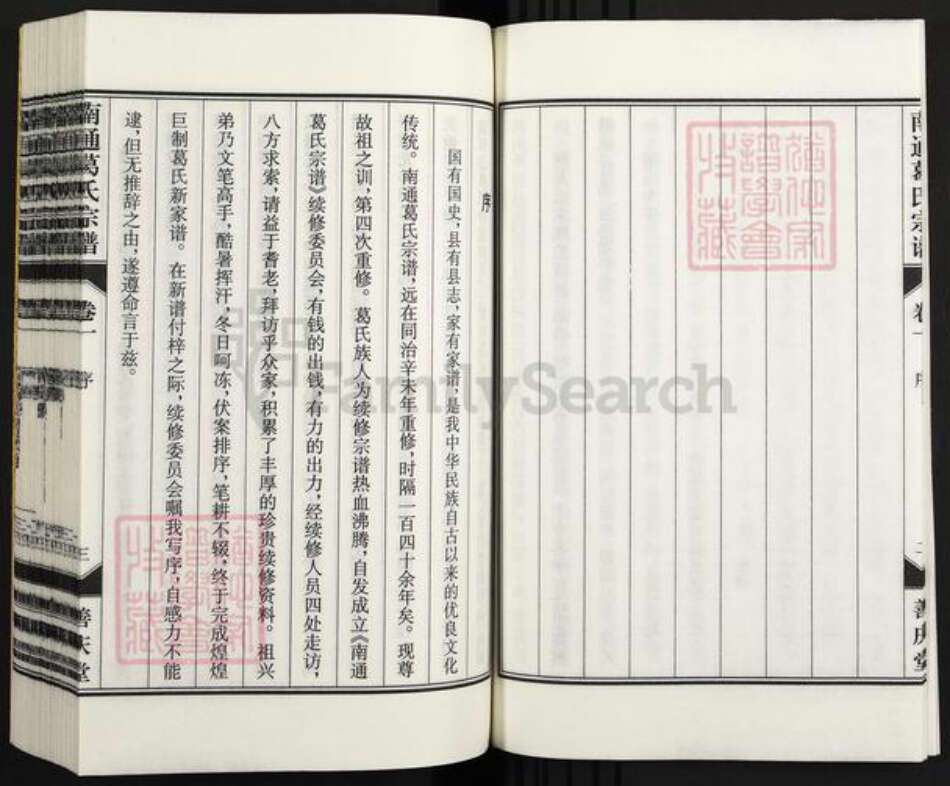 南通葛氏宗谱
卷一
序
二
善庆堂
序
国有国史，县有县志，家有家谱，是我中华民族自古以来的优良文化
传统。南通葛氏宗谱，远在同治辛未年重修，时隔一百四十余年矣。现尊
故祖之训，第四次重修。葛氏族人为续修宗谱热血沸腾，自发成立《南通
葛氏宗谱》续修委员会，有钱的出钱，有力的出力，经续修人员四处走访，
八方求索，请益于耆老，拜访乎众家，积累了丰厚的珍贵续修资料。祖兴
弟乃文笔高手，酷暑挥汗，冬日呵冻，伏案排序，笔耕不辍，终于完成煌煌
巨制葛氏新家谱。在新谱付梓之际，续修委员会嘱我写序，自感力不能
逮，但无推辞之由，遂遵命言于兹。
南通葛氏宗谱
卷一
序
三
善庆堂
FamilySearch